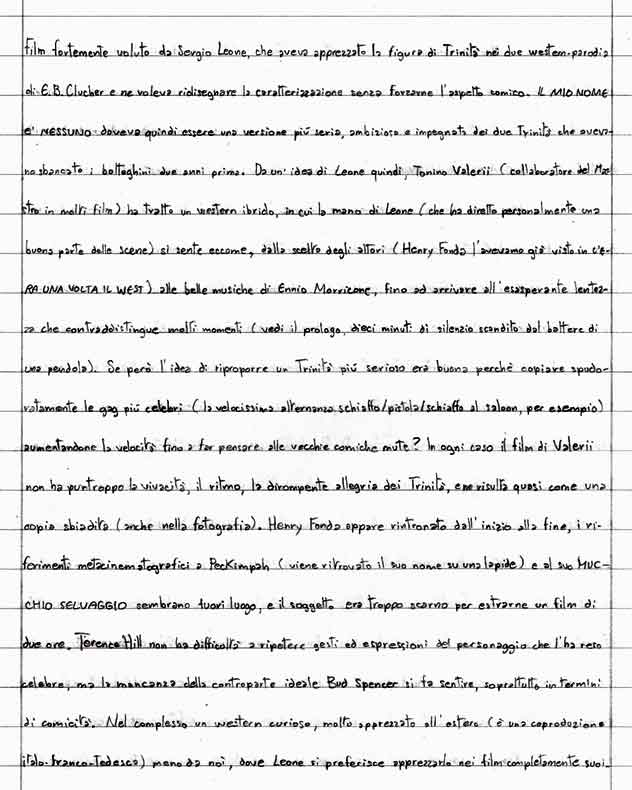 Film fortemente voluto da Sergio Leone, che aveva apprezzato la figura di Trinità nei due western-parodia
di E.B. Clucher e ne voleva ridisegnare la caratterizzazione senza forzarne l'aspetto comico. IL MIO NOME
E' NESSUNO doveva quindi essere una versione più seria, ambiziosa e impegnata dei due Trinità che aveva-
no sbancato i botteghini due anni prima. Da un'idea di Leone quindi, Tonino Valerii (collaboratore del Mae-
stro in molti film) ha tratto un western ibrido, in cui la mano di Leone (che ha diretto personalmente una
buona parte delle scene) si sente eccome, dalla scelta degli attori (Henry Fonda l'avevamo già visto in C'E-
RA UNA VOLTA IL WEST) alle belle musiche di Ennio Morricone, fino ad arrivare all'esasperante lentez-
za che contraddistingue molti momenti (vedi il prologo, dieci minuti di silenzio scandito dal battere di
una pendola). Se però l'idea di riproporre un Trinità più serioso era buona perchè copiare spudo-
ratamente le gag più celebri (la velocissima alternanza schiaffo/pistola/schiaffo al saloon, per esempio)
aumentandone la velocità fino a far pensare alle vecchie comiche mute? In ogni caso il film di Valerii
non ha purtroppo la vivacità, il ritmo, la dirompente allegria dei Trinità, e ne risulta quasi come una
copia sbiadita (anche nella fotografia). Henry Fonda appare rintronato dall'inizio alla fine, i ri-
ferimenti metacinematografici a Peckimpah (viene ritrovato il suo nome su una lapide) e al suo MUC-
CHIO SELVAGGIO sembrano fuori luogo, e il soggetto era troppo scarno per estrarne un film di
due ore. Terence Hill non ha difficoltà a ripetere gesti ed espressioni del personaggio che l'ha reso
celebre, ma la mancanza della controparte ideale Bud Spencer si fa sentire, soprattutto in termini
di comicità. Nel complesso un western curioso, molto apprezzato all'estero (è una coproduzione
italo-franco-tedesca) meno da noi, dove Leone si preferisce apprezzarlo nei film completamente suoi.